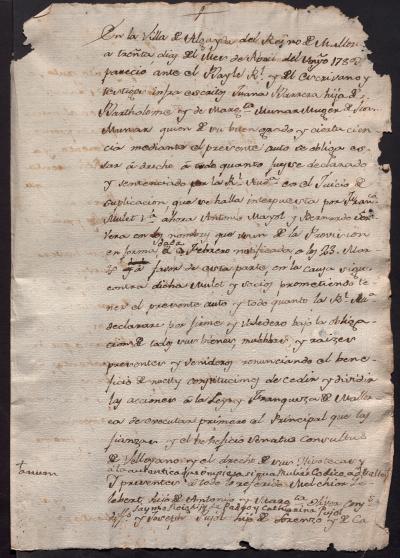 En la Villa de Algayda del Reyno de Mallor
a treinta dias del Mes de Abril del Año 178
pareció ante el Bayle Rl. y del Escrivano y
testigos infra escritos Juana Barrera hija de
Bartholome y de Margta. Munar Muger de
Munar quien de su bien grado y cierta cien
cia mediante el presente auto se obliga es
tar à drecho à todo quanto fuese declarado
y sentenciado por la Rl. Auda. en el Juicio de
suplicacion que se halla interpuesta por Frana.
Mulet Va. ahora Antonio Mayol y Bernardo
vera en los nombres que de la Provision
en forma de Febrero notificada a los 23. Mar
à favor de esta parte en la causa sigue
contra dicha Mulet y socios prometiendo te
ner el presente auto y todo quanto la Rl. Auda.
declarare por firme y valedero bajo la obliga
cion de todos sus bienes muebles y raizes
presentes y venideros renunciando el bene
ficio de nuevas constituciones de cedir y dividir
las acciones à la Ley y Franqueza de Mallor
ca de executar primero al Principal que las
fianzas y el beneficio Senatus consultus
de Velleyano y el drecho de sus Hipotecas y
à la autentica si qua mulier Codice
y presentes à todo lo referido Melchior
hijo de Antonio y Margta. Oliver
Jayme de Pedro y Catharina Pujol
y Joseph Pujol hijo de Lorenzo y de Ca